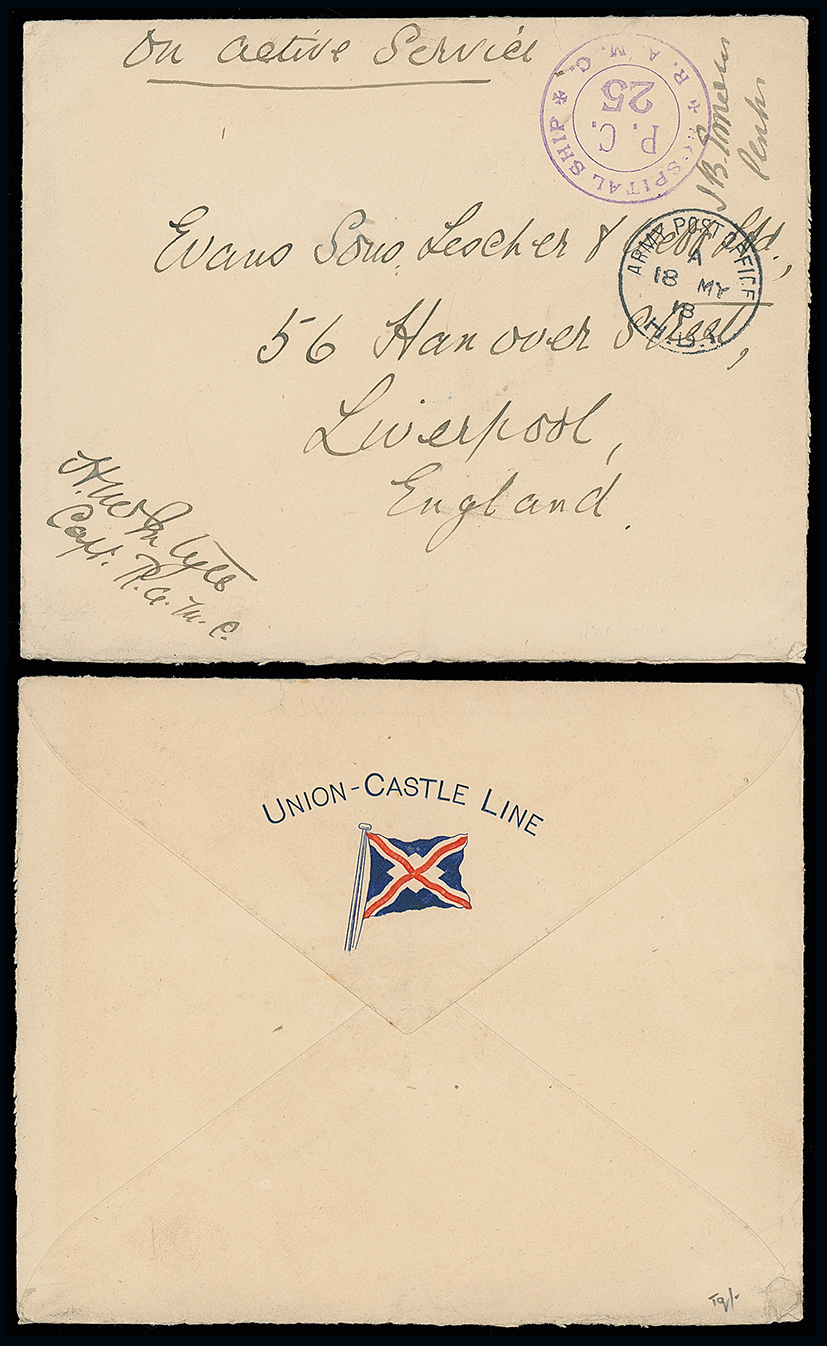 On Active Service
HOSPITAL SHIP ✠ R. A. M. C. ✠
P. C.
25
Evans Sons, Lescher & Webb Ltd.,
ARMY POST OFFICE
A
18 MY
18
56 Hanover Street,
Liverpool,
England.
Capt. R.A.M.C.
UNION-CASTLE LINE